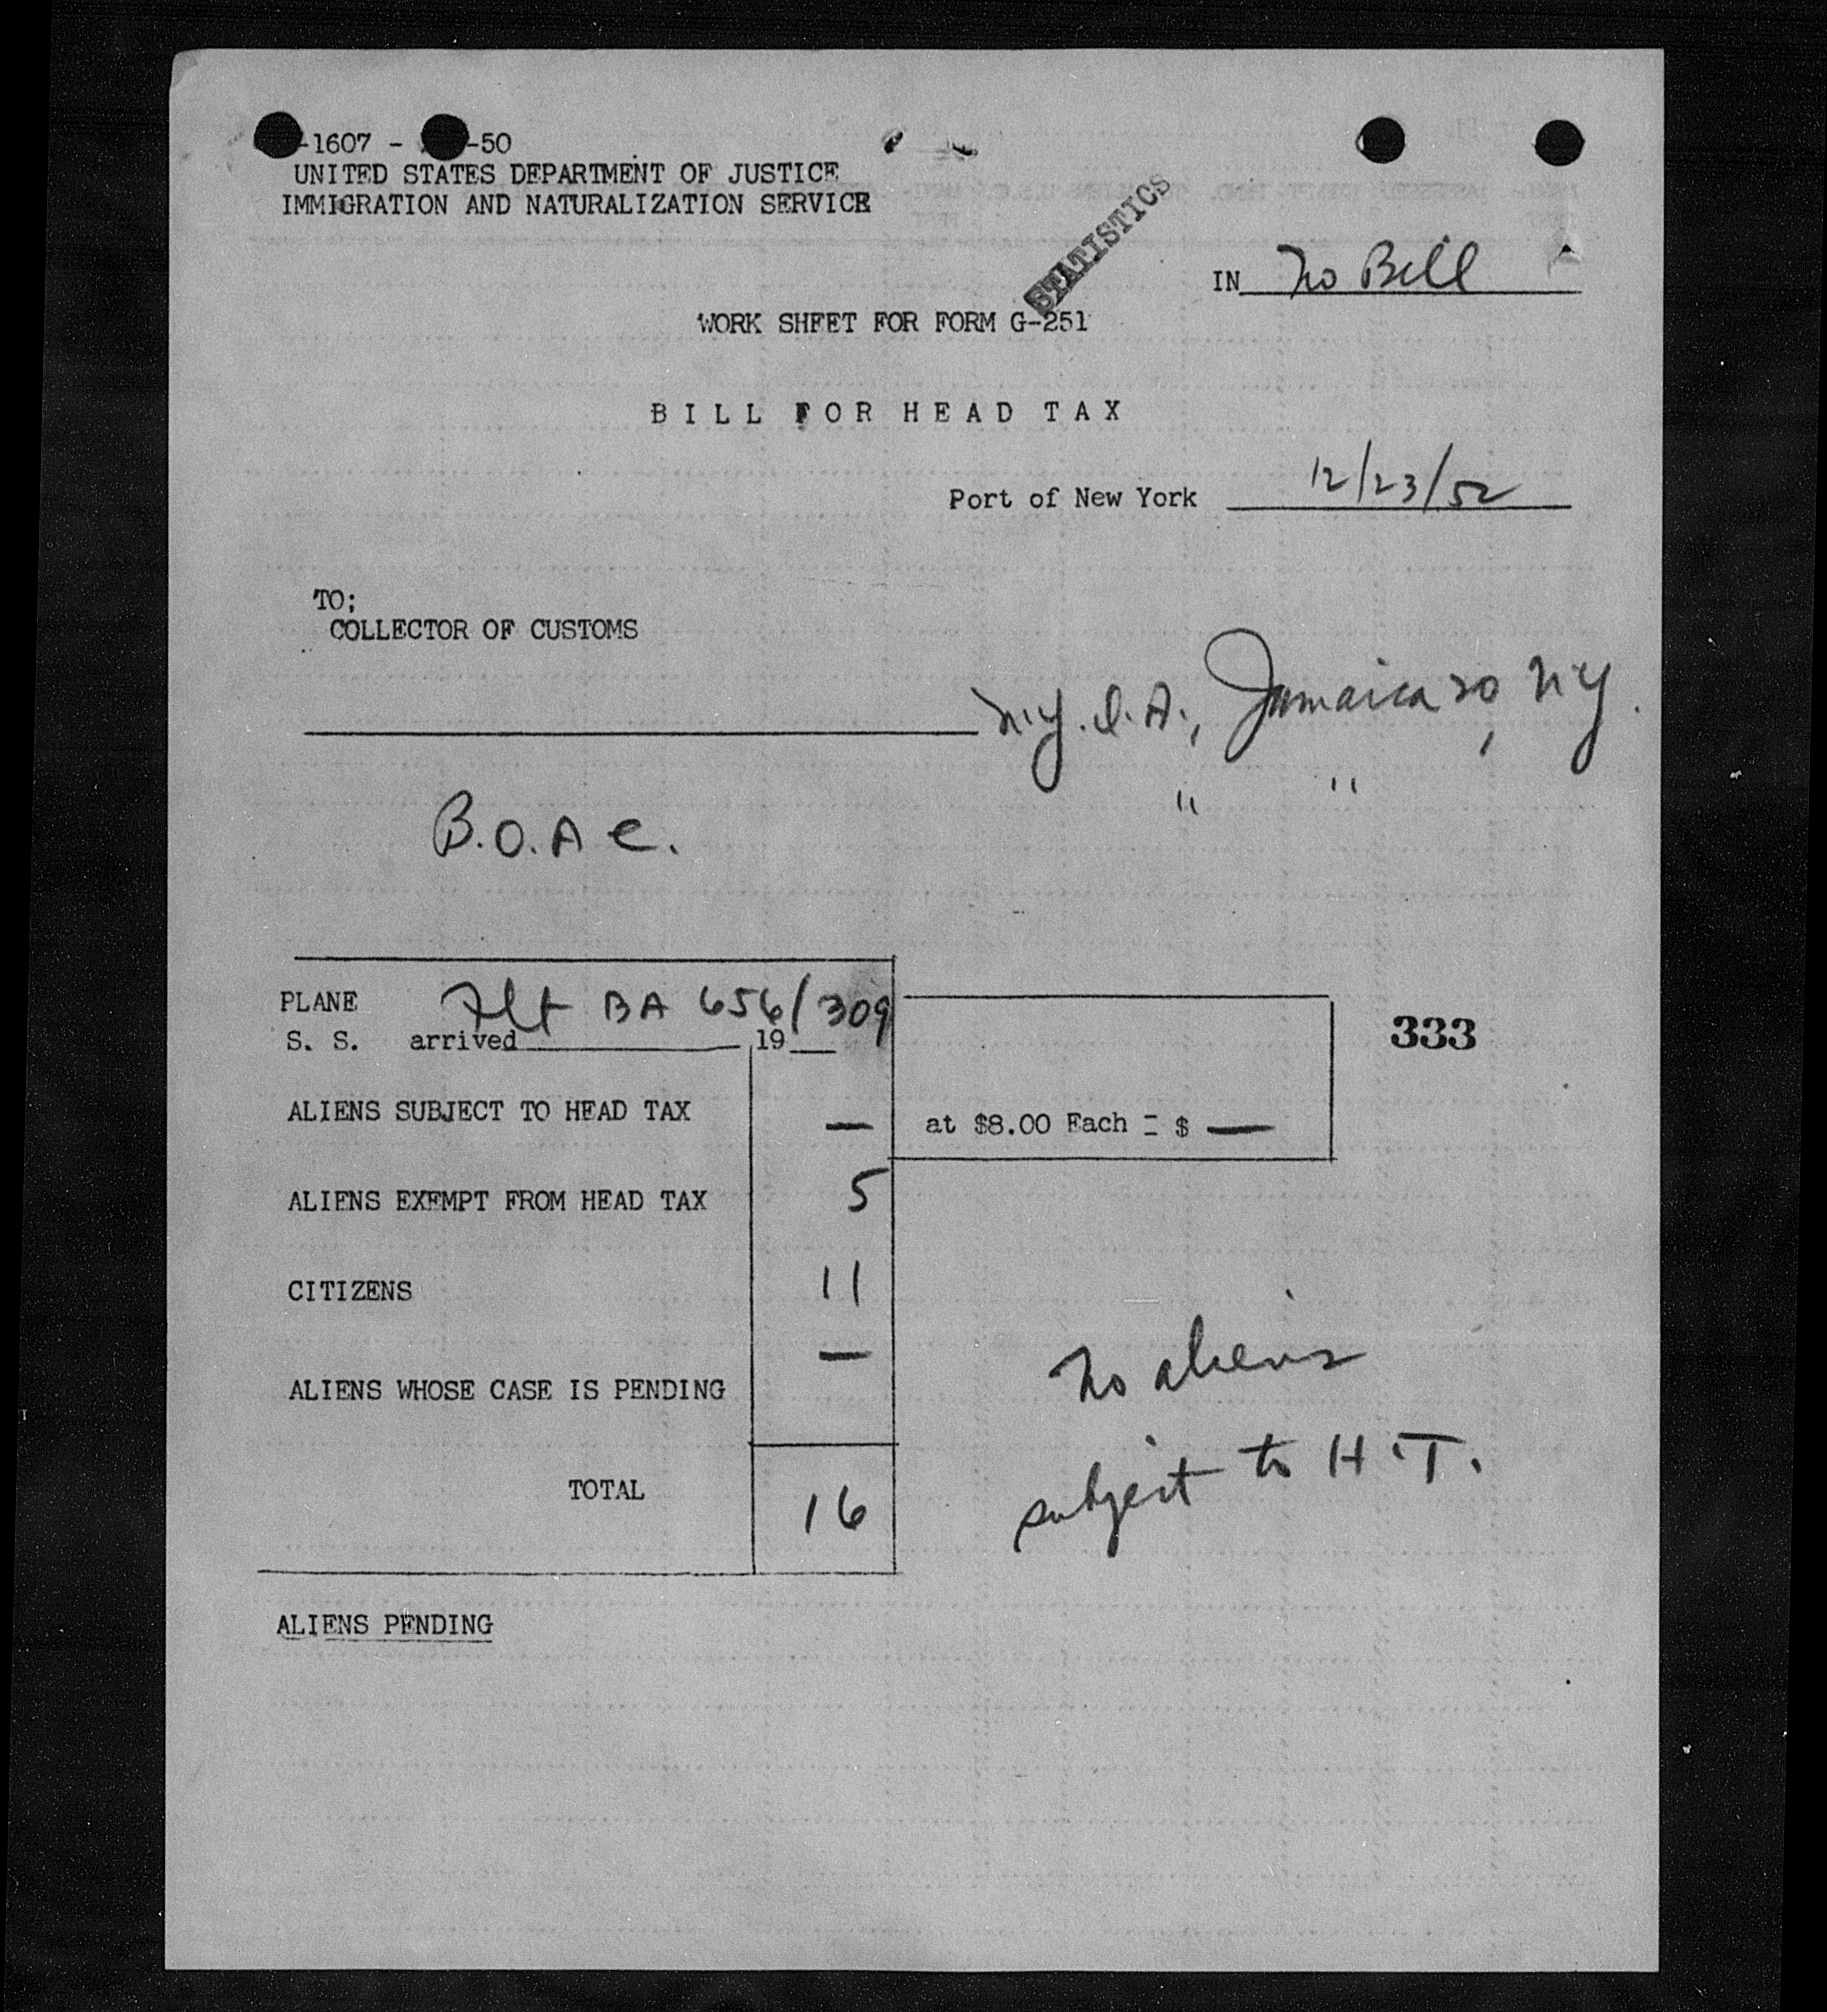 -1607 - -50
UNITED STATES DEPARTMENT OF JUSTICE
IMMIGRATION AND NATURALIZATION SERVICE
STATISTICS
IN No Bill
WORK SHEET FOR FORM G-251
BILL FOR HEAD TAX
Port of New York 12/23/52
TO:
COLLECTOR OF CUSTOMS
N.Y. I.A., Jamaica 20, NY.
" "
B.O.A C.
PLANE Flt BA 656/309
S. S. arrived 19
333
ALIENS SUBJECT TO HEAD TAX — at $8.00 Each = $ —
ALIENS EXEMPT FROM HEAD TAX 5
CITIZENS 11
ALIENS WHOSE CASE IS PENDING —
No aliens
subject to H.T.
TOTAL 16
ALIENS PENDING